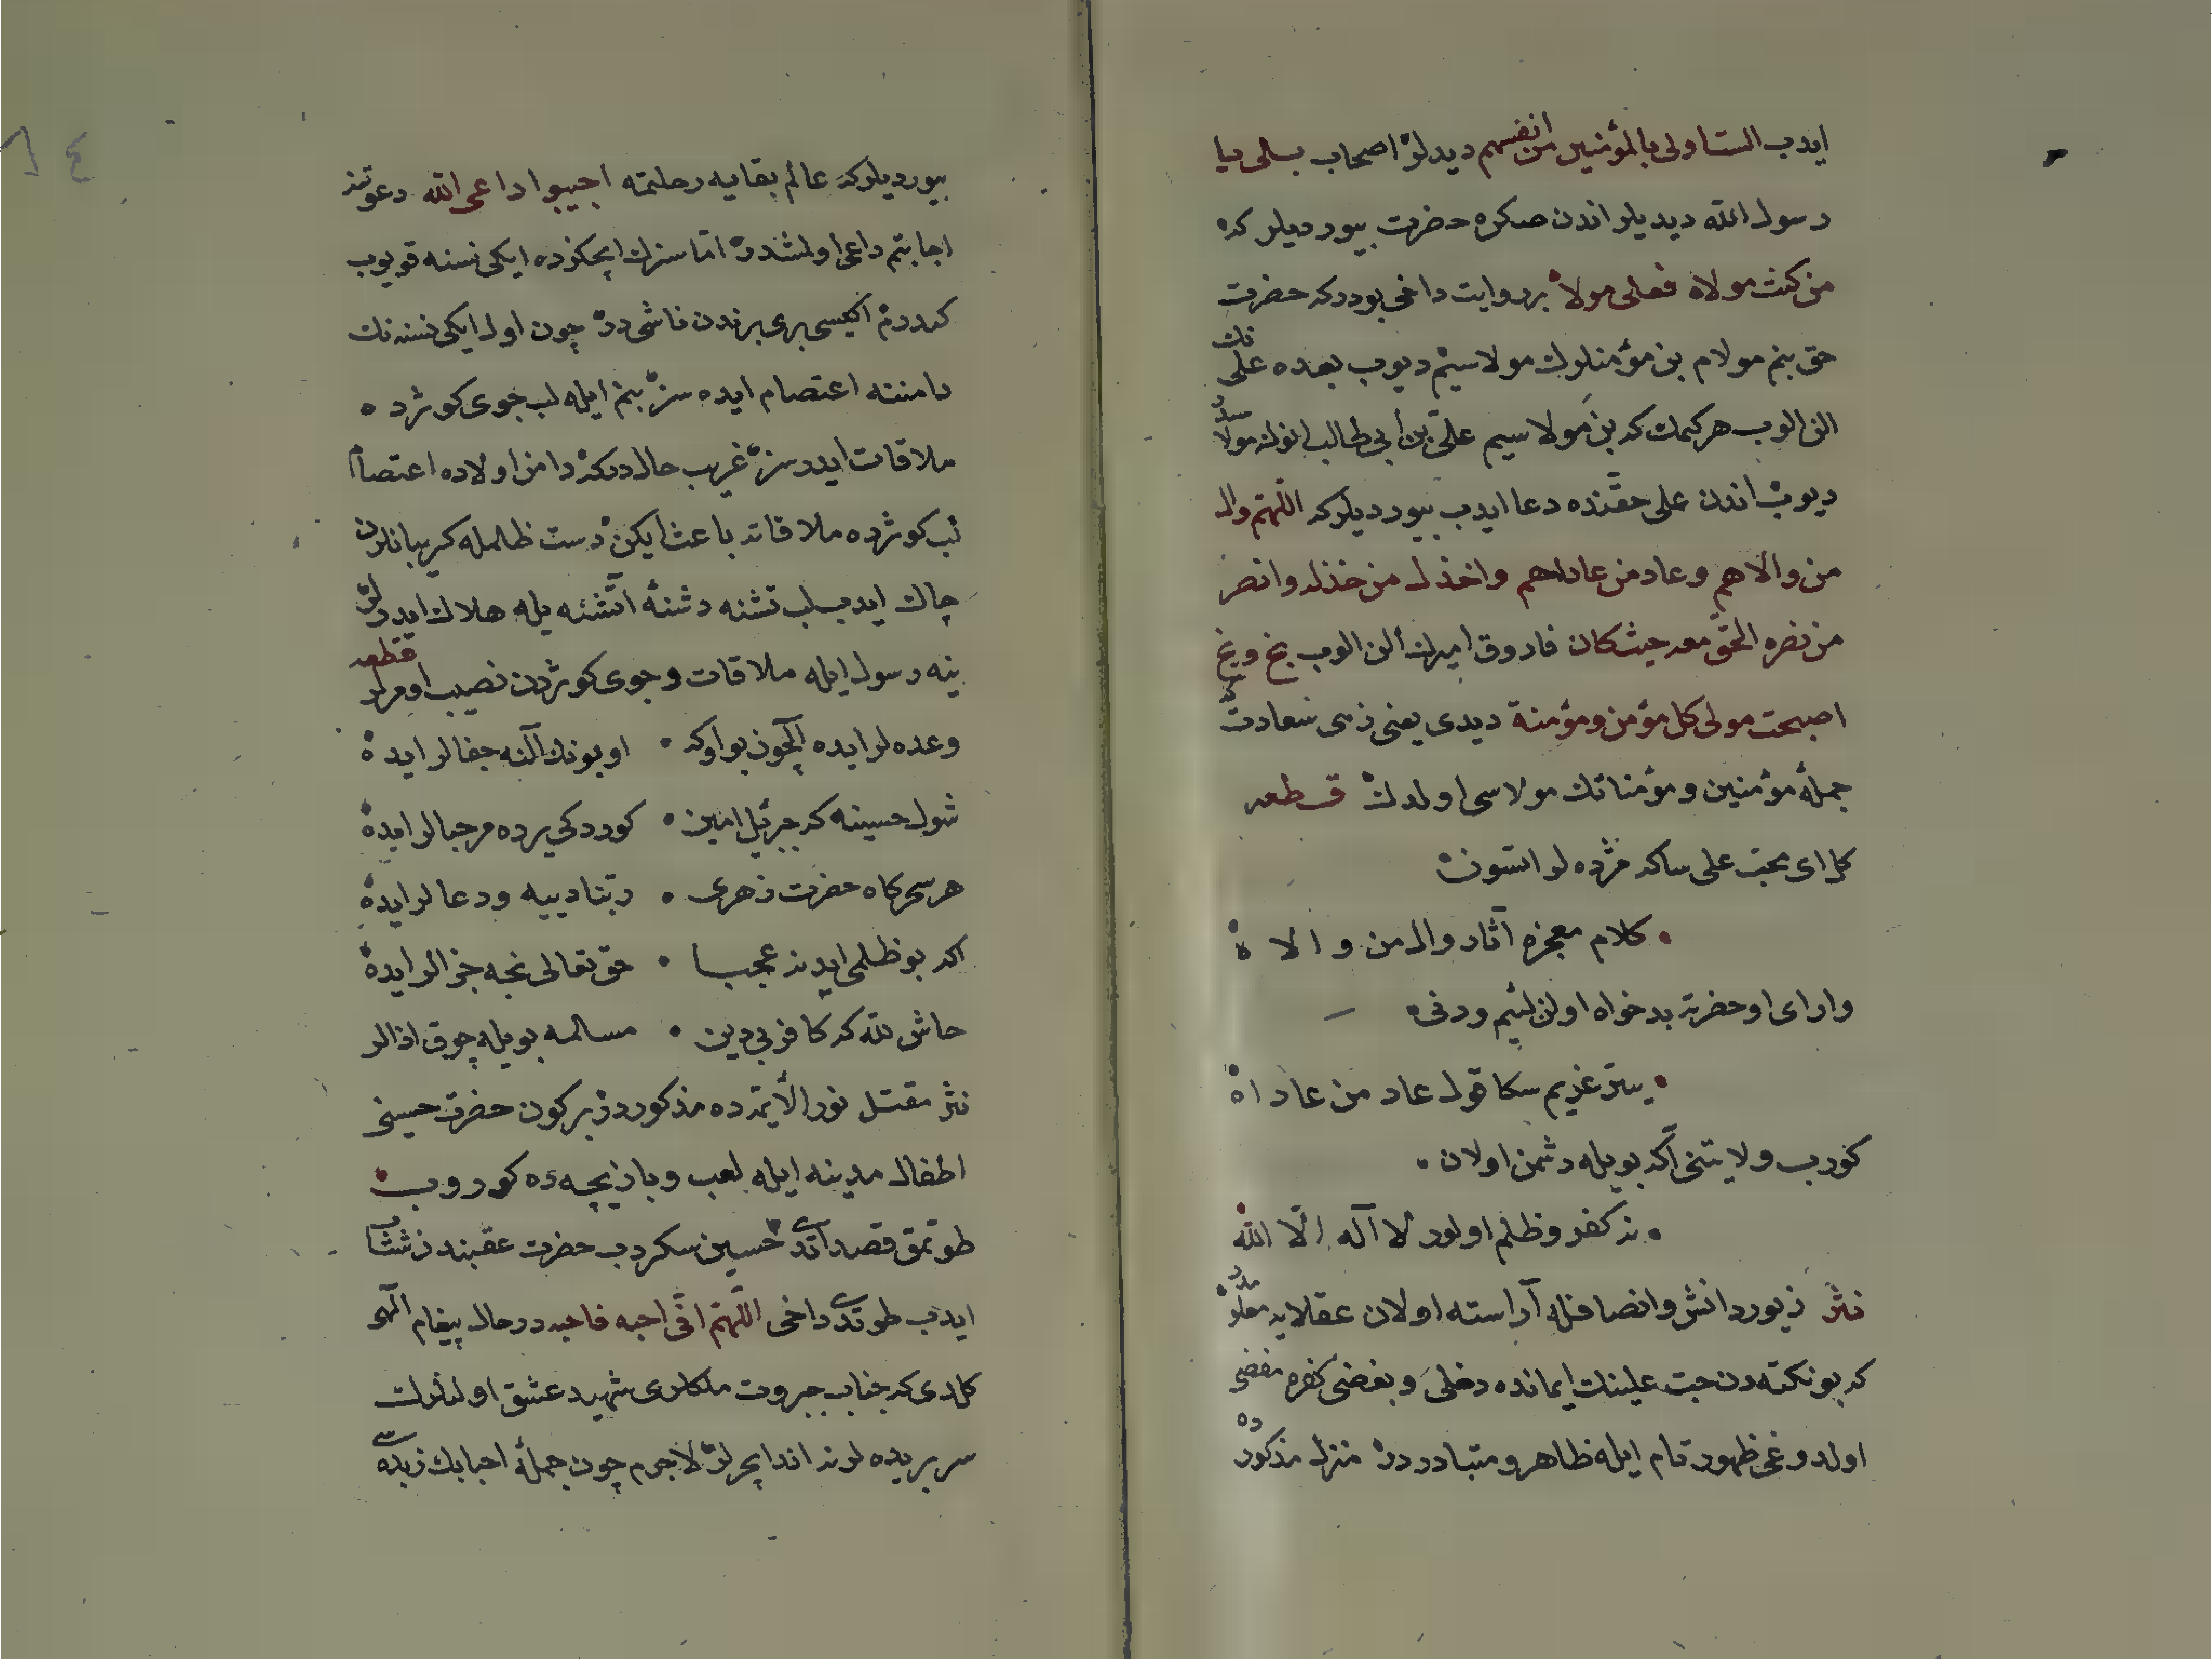 ايدب الست اولى بالمؤمنين من انفسهم ديدلر اصحاب بلى يا
رسول الله ديديلر اندن صكره حضرت بيورديلر كه
من كنت مولاه فعلى مولاه بر روايت داخى بودر كه حضرت
حق بنم مولام بن مؤمنلرك مولاسيم ديوب بعده على نك
الن الوب هر كيمك كه بن مولاسيم على بن ابى طالب انوك مولاسيدر
ديوب اندن على حقنده دعا ايدب بيورديلر كه اللهم وال
من والاهم وعاد من عاداهم واخذل من خذله وانصر
من نصره الحق معه حيث كان فاروق اميرك الن الوب بخ وبخ
اصبحت مولى كل مؤمن ومؤمنة ديدى يعنى زهى سعادت كه
جملۀ مؤمنين ومؤمناتك مولاسى اولدك قطعه
كل اى محب على ساكه مژده لر اتسون
كلام معجزه آثار وال من والاه
وار اى او حضرته بدخواه اولن لئيم ودنى
يتر عزيم سكا قول عاد من عاداه
كورب ولايتنى اكه بويله دشمن اولان
نه كفر وظلم اولور لا آله الا الله
نثر زيور دانش وانصافله آراسته اولان عقلايه معلومدر
كه بو نكته دن حب علينك ايمانده دخلى وبغضى كفره مفضى
اولدوغى ظهور تام ايله ظاهر ومتبادردر منزل مذكورده
بيورديلر كه عالم بقايه رحلتمه اجيبوا داعى الله دعوتنه
اجابتم داعى اولمشدر اما سزك ايچكزده ايكى نسنه قويوب
كدرم اكيسى برى برندن ناشى در چون اول ايكى نسنه نك
دامننه اعتصام ايده سز بنم ايله لب جوى كوثرده
ملاقات ايدرسز غريب حالدركه دامن اولاده اعتصام
لب كوثرده ملاقاته باعث ايكن دست ظلمله كريبانلرن
چاك ايدب لب تشنه دشنۀ آتشنه يله هلاك ايدنلر
ينه رسول ايله ملاقات وجوى كوثردن نصيب اومرلر قطعه
وعده لر ايده انچون بو اوكه او بونك آلنه جفالر ايده
شول حسينه كه جبرئيل امين كوردكى يرده مرحبالر ايده
هر سحركاه حضرت زهرى ربنا دييه ودعالر ايده
اكه بو ظلمى ايدنه عجبا حق تعالى نجه جزالر ايده
حاش لله كه كافر بى دين مسلمه بويله چوق اذالر
نثر مقتل نور الأئمه ده مذكوردر بر كون حضرت حسينى
اطفال مدينه ايله لعب وبازيچه ده كوروب
طوتمق قصد اتدى حسين سكردب حضرت عقبنه شتاب
ايدب طوتدى داخى اللهم انى احبه فاحبه در حال پيغام الهى
كلدى كه جناب جبروت ملكلرى شهيد عشق اولنلرك
سر بريده لرنه اندايچرلر لاجرم چون جملۀ احبابك زبده سى